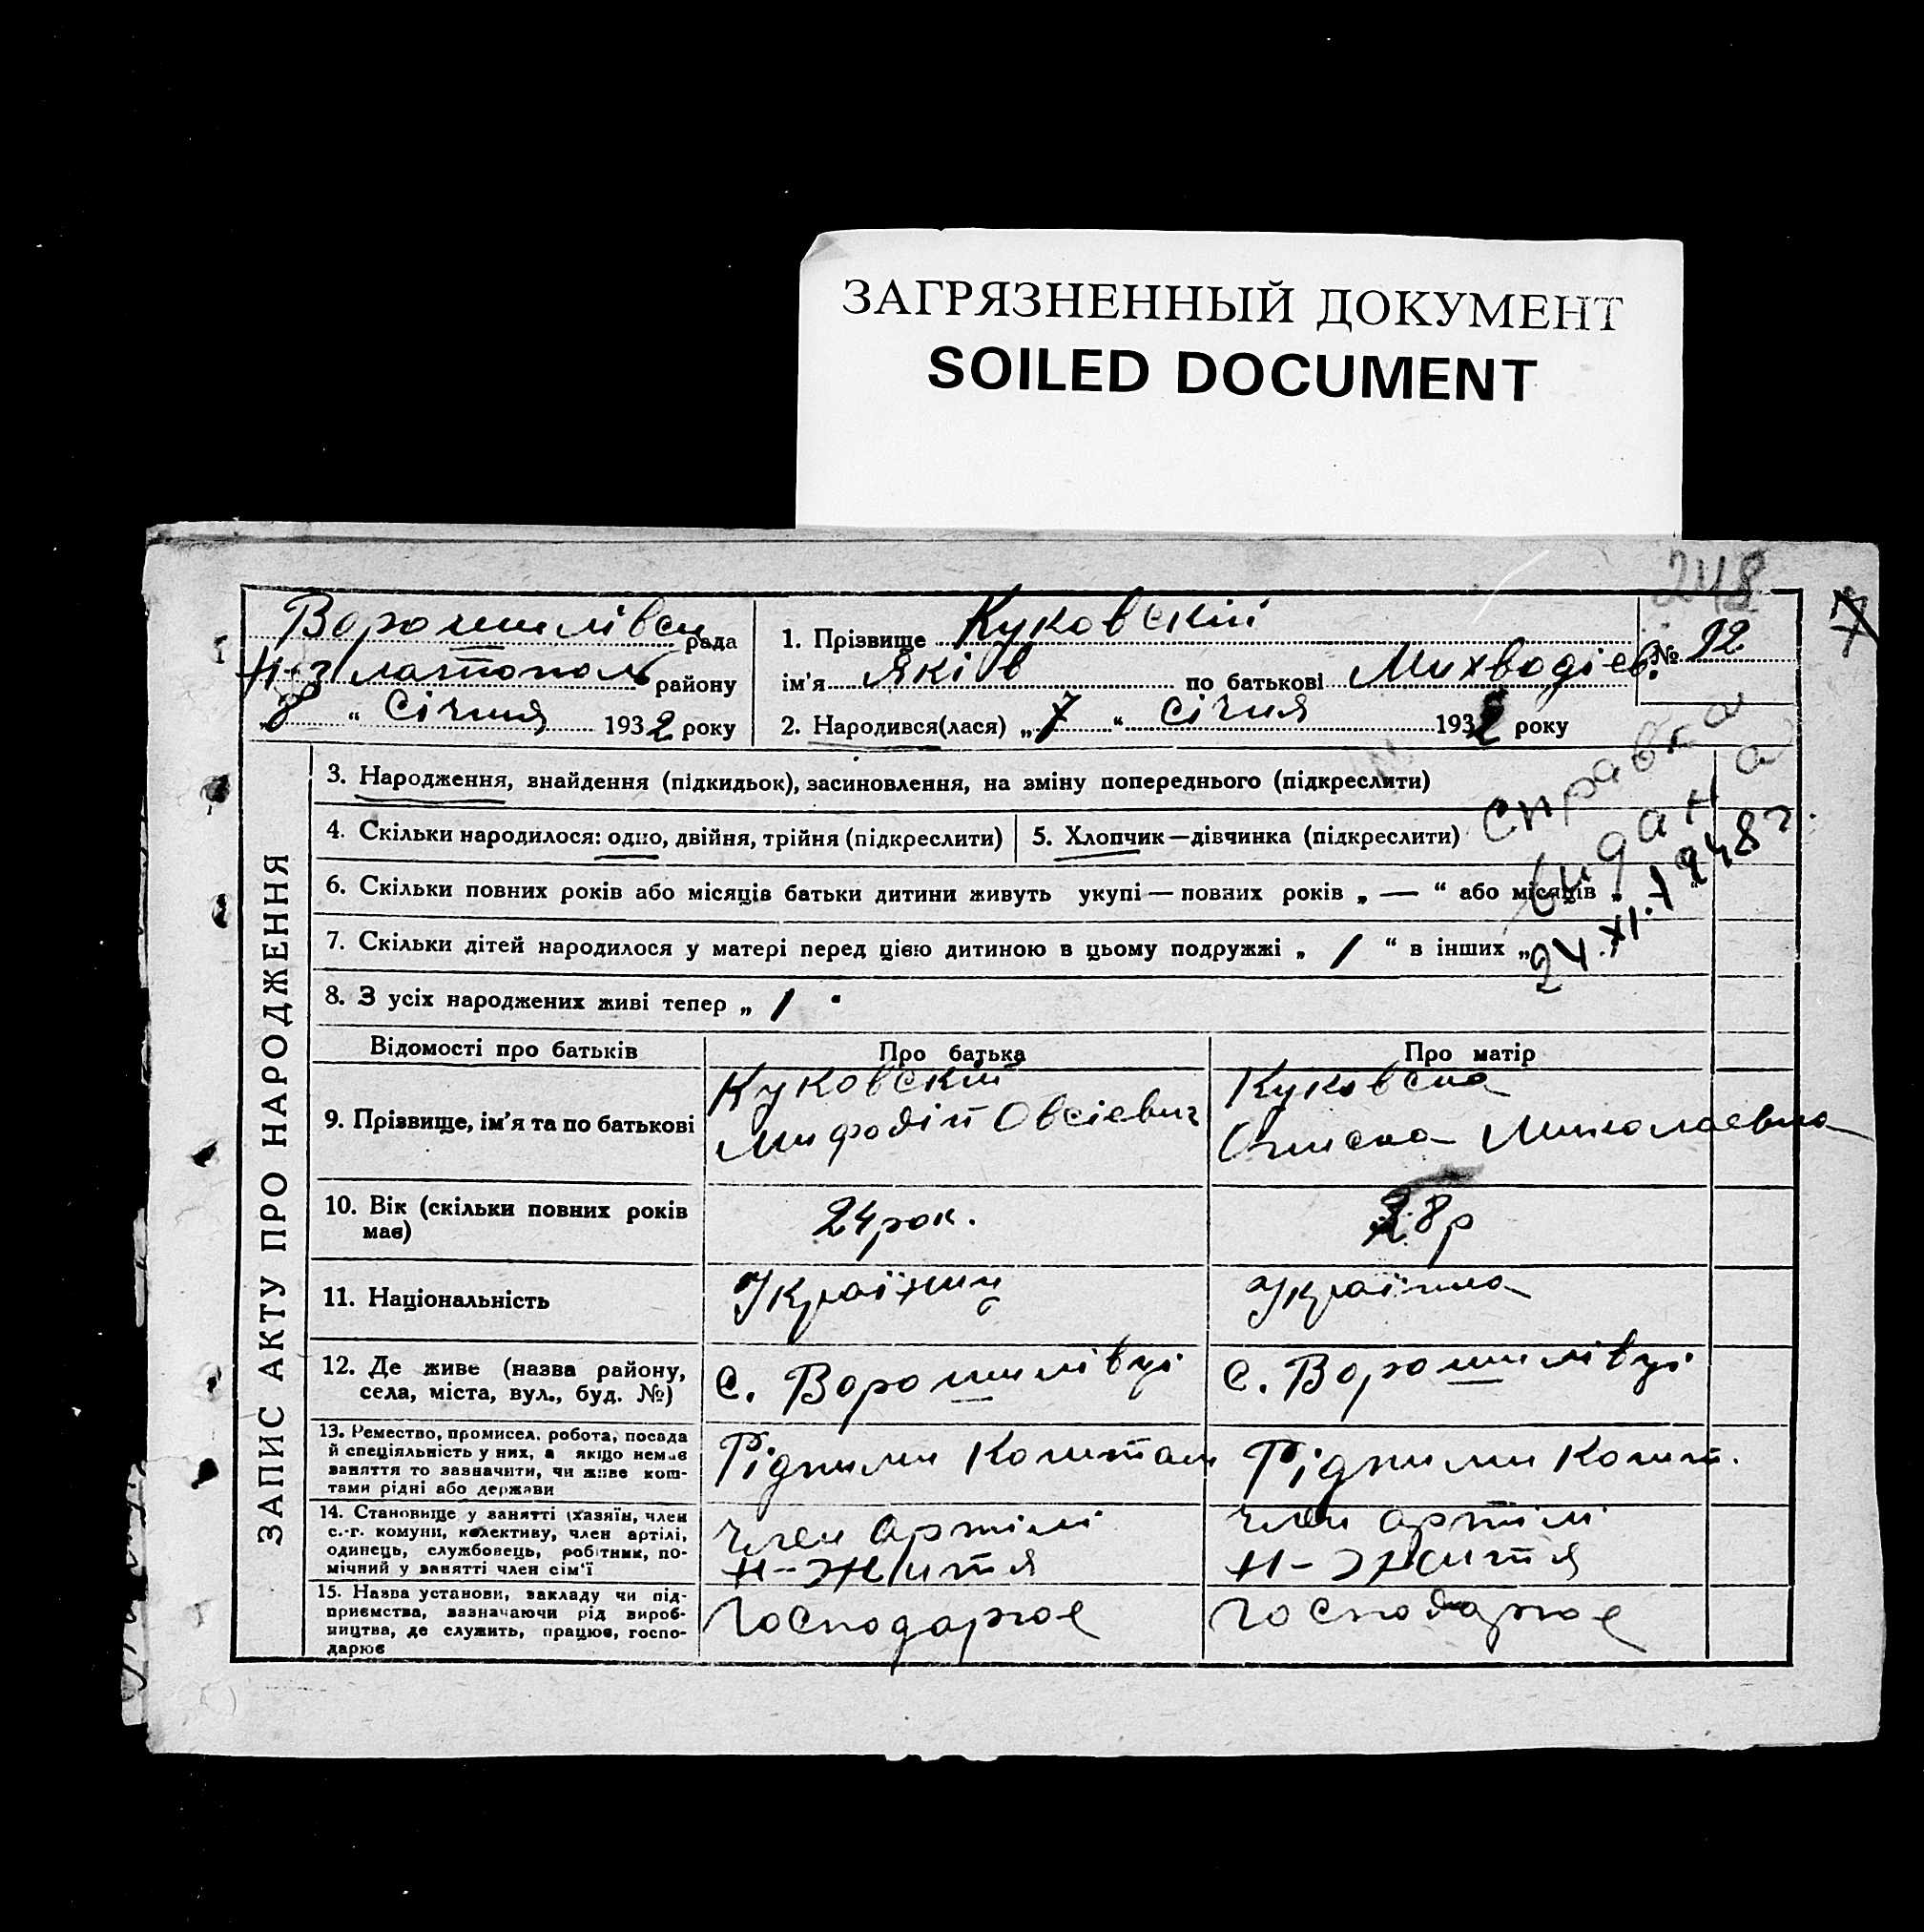 ЗАГРЯЗНЕННЫЙ ДОКУМЕНТ
SOILED DOCUMENT
248
7
Ворошилівсь рада
Н-Златополь району
„8“ Січня 1932 року
1. Прізвище Куковскій
ім'я Яків по батькові Михводіев.
№ 12
2. Народився(лася) „7“ Січня 1932 року
ЗАПИС АКТУ ПРО НАРОДЖЕННЯ
3. Народження, знайдення (підкидьок), засиновлення, на зміну попереднього (підкреслити)
4. Скільки народилося: одно, двійня, трійня (підкреслити)
5. Хлопчик—дівчинка (підкреслити)
справка
видана
24.XI.1948 г.
6. Скільки повних років або місяців батьки дитини живуть укупі—повних років „ — “ або місяців „ “
7. Скільки дітей народилося у матері перед цією дитиною в цьому подружжі „ 1 “ в інших „
8. З усіх народжених живі тепер „ 1 “
Відомості про батьків
Про батька
Про матір
9. Прізвище, ім'я та по батькові
Куковскій
Мифодій Овсіевич
Куковска
Миколаевна
10. Вік (скільки повних років
має)
24 рок.
28 р
11. Національність
Українц
Українка
12. Де живе (назва району,
села, міста, вул., буд. №)
с. Ворошилівці
с. Ворошилівці
13. Ремество, промисел, робота, посада
й спеціяльність у них, а якщо немає
заняття то зазначити, чи живе кош-
тами рідні або держави
Рідними Коштам
Рідними Кошт.
14. Становище у занятті (хазяїн, член
с.-г. комуни, колективу, член артілі,
одинець, службовець, робітник, по-
мічний у занятті член сім'ї
член артілі
Н-Життя
член артілі
Н-Життя
15. Назва установи, закладу чи під-
приємства, зазначаючи рід вироб-
ництва, де служить, працює, госпо-
дарює
Господарює
Господарює